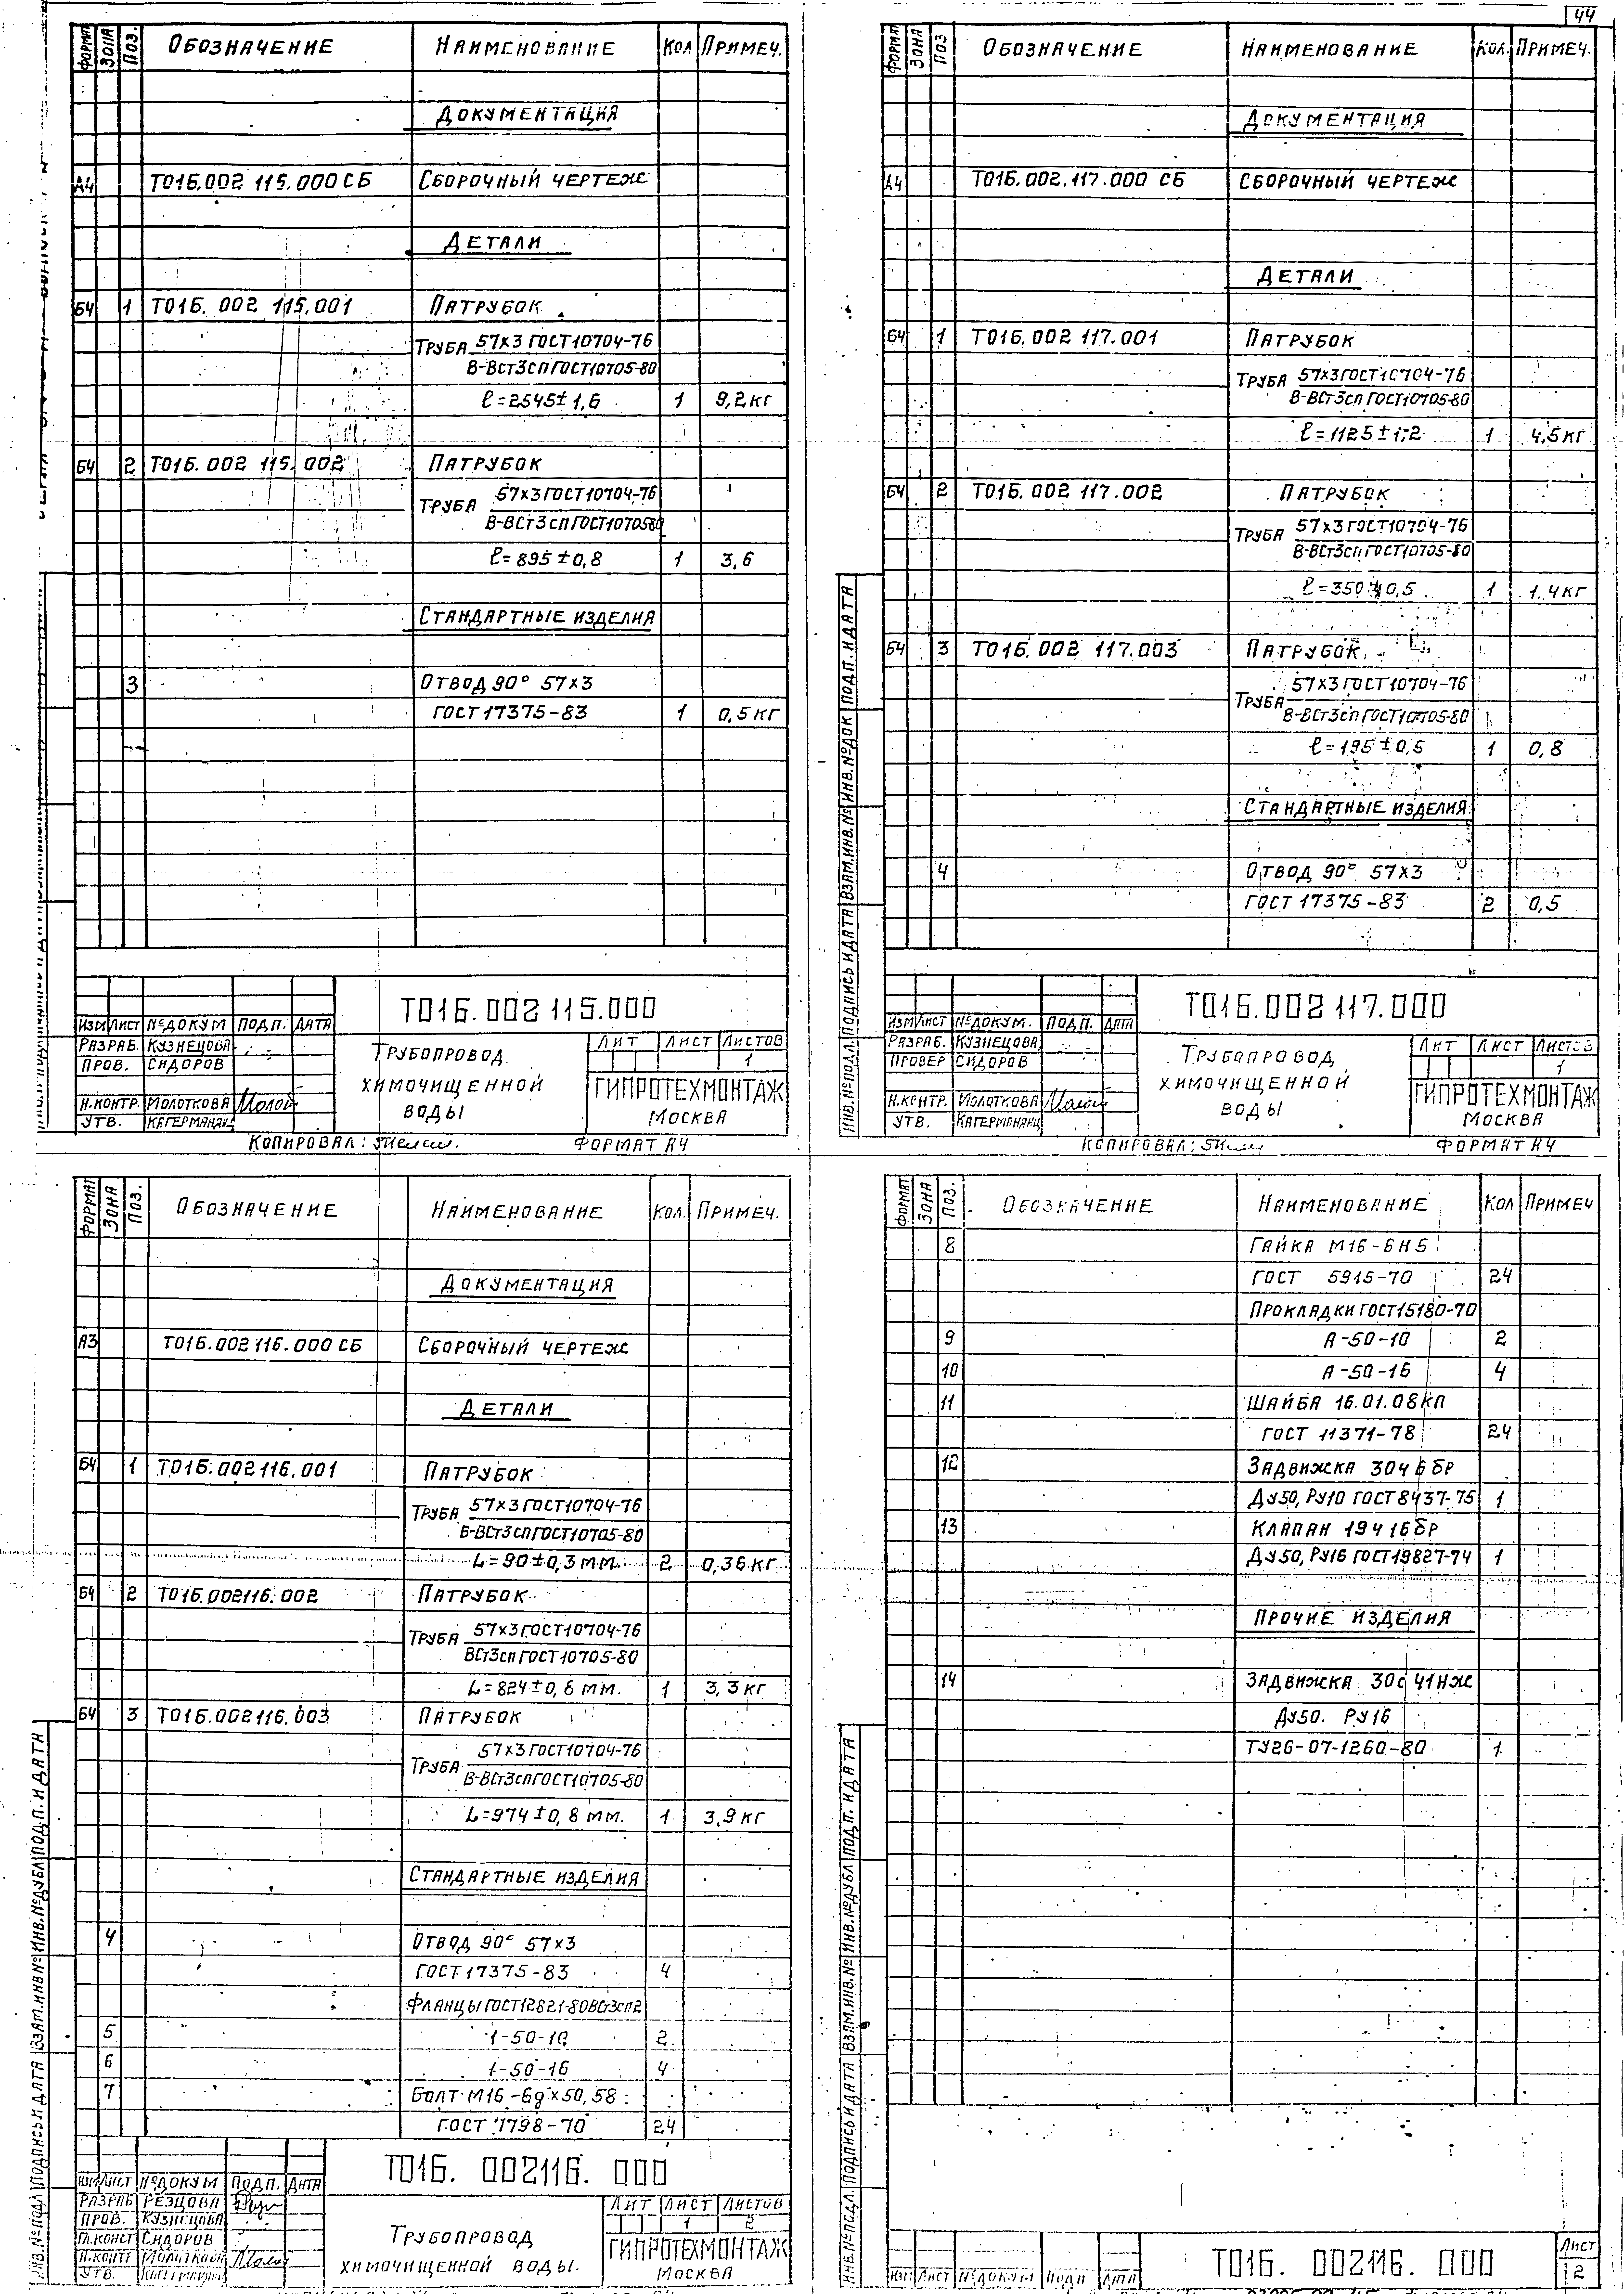 44
ФОРМАТ ЗОНА ПОЗ. ОБОЗНАЧЕНИЕ НАИМЕНОВАНИЕ КОЛ ПРИМЕЧ.
ДОКУМЕНТАЦИЯ
А4 Т01Б.002 115.000 СБ СБОРОЧНЫЙ ЧЕРТЕЖ
ДЕТАЛИ
Б4 1 Т01Б. 002 115.001 ПАТРУБОК
ТРУБА 57х3 ГОСТ10704-76
В-ВСт3сп ГОСТ10705-80
ℓ=2545±1,6 1 9,2 кг
Б4 2 Т01Б. 002 115. 002 ПАТРУБОК
ТРУБА 57х3 ГОСТ10704-76
В-ВСт3сп ГОСТ10705-80
ℓ=895±0,8 1 3,6
СТАНДАРТНЫЕ ИЗДЕЛИЯ
3 ОТВОД 90° 57х3
ГОСТ 17375-83 1 0,5 кг
Т01Б.002 115.000
ИЗМ ЛИСТ №ДОКУМ ПОДП. ДАТА
РАЗРАБ. КУЗНЕЦОВА
ПРОВ. СИДОРОВ
Н.КОНТР. МОЛОТКОВА
УТВ.
ТРУБОПРОВОД
ХИМОЧИЩЕННОЙ
ВОДЫ
ЛИТ ЛИСТ ЛИСТОВ
1
ГИПРОТЕХМОНТАЖ
МОСКВА
КОПИРОВАЛ: ФОРМАТ А4
ФОРМАТ ЗОНА ПОЗ ОБОЗНАЧЕНИЕ НАИМЕНОВАНИЕ КОЛ. ПРИМЕЧ.
ДОКУМЕНТАЦИЯ
А4 Т01Б.002.117.000 СБ СБОРОЧНЫЙ ЧЕРТЕЖ
ДЕТАЛИ
Б4 1 Т01Б.002 117.001 ПАТРУБОК
ТРУБА 57х3 ГОСТ10704-76
В-ВСт3сп ГОСТ10705-80
ℓ=1125±1,2 1 4,5 кг
Б4 2 Т01Б.002 117.002 ПАТРУБОК
ТРУБА 57х3 ГОСТ10704-76
В-ВСт3сп ГОСТ10705-80
ℓ=350±0,5 1 1.4 кг
Б4 3 Т01Б.002 117.003 ПАТРУБОК
ТРУБА 57х3 ГОСТ10704-76
В-ВСт3сп ГОСТ10705-80
ℓ=195±0,5 1 0,8
СТАНДАРТНЫЕ ИЗДЕЛИЯ
4 ОТВОД 90° 57х3
ГОСТ 17375-83 2 0,5
ИНВ.№ПОДЛ. ПОДПИСЬ И ДАТА ВЗАМ.ИНВ.№ ИНВ.№ДОК ПОДП. И ДАТА
Т01Б.002 117.000
ИЗМ ЛИСТ №ДОКУМ. ПОДП. ДАТА
РАЗРАБ. КУЗНЕЦОВА
ПРОВЕР СИДОРОВ
Н.КОНТР. МОЛОТКОВА
УТВ.
ТРУБОПРОВОД
ХИМОЧИЩЕННОЙ
ВОДЫ
ЛИТ ЛИСТ ЛИСТОВ
1
ГИПРОТЕХМОНТАЖ
МОСКВА
КОПИРОВАЛ: ФОРМАТ А4
ФОРМАТ ЗОНА ПОЗ. ОБОЗНАЧЕНИЕ НАИМЕНОВАНИЕ КОЛ. ПРИМЕЧ.
ДОКУМЕНТАЦИЯ
А3 Т01Б.002 116.000 СБ СБОРОЧНЫЙ ЧЕРТЕЖ
ДЕТАЛИ
Б4 1 Т01Б.002116.001 ПАТРУБОК
ТРУБА 57х3 ГОСТ10704-76
В-ВСт3сп ГОСТ10705-80
L=90±0,3 мм. 2 0,36 кг
Б4 2 Т01Б.002116.002 ПАТРУБОК
ТРУБА 57х3 ГОСТ10704-76
ВСт3сп ГОСТ10705-80
L=824±0,8 мм. 1 3,3 кг
Б4 3 Т01Б.002116.003 ПАТРУБОК
57х3 ГОСТ10704-76
ТРУБА
В-ВСт3сп ГОСТ10705-80
L=974±0,8 мм. 1 3,9 кг
СТАНДАРТНЫЕ ИЗДЕЛИЯ
4 ОТВОД 90° 57х3
ГОСТ 17375-83 4
ФЛАНЦЫ ГОСТ12821-80ВСт3сп2
5 1-50-10 2
6 1-50-16 4
7 БОЛТ М16-6gх50,58
ГОСТ 7798-70 24
ИНВ.№ПОДЛ ПОДПИСЬ И ДАТА ВЗАМ.ИНВ.№ ИНВ.№ДУБЛ ПОДП. И ДАТА
Т01Б. 002116. 000
ИЗМ ЛИСТ №ДОКУМ ПОДП. ДАТА
РАЗРАБ РЕЗЦОВА
ПРОВ. КУЗНЕЦОВА
ГЛ.КОНСТ СИДОРОВ
Н.КОНТР МОЛОТКОВА
УТВ.
ТРУБОПРОВОД
ХИМОЧИЩЕННОЙ ВОДЫ.
ЛИТ ЛИСТ ЛИСТОВ
1 2
ГИПРОТЕХМОНТАЖ
МОСКВА
ФОРМАТ ЗОНА ПОЗ. ОБОЗНАЧЕНИЕ НАИМЕНОВАНИЕ КОЛ ПРИМЕЧ
8 ГАЙКА М16-6Н5
ГОСТ 5915-70 24
ПРОКЛАДКИ ГОСТ15180-70
9 А-50-10 2
10 А-50-16 4
11 ШАЙБА 16.01.08кп
ГОСТ 11371-78 24
12 ЗАДВИЖКА 30ч6бр
ДУ50, РУ10 ГОСТ8437-75 1
13 КЛАПАН 19ч16бр
ДУ50, РУ16 ГОСТ19827-74 1
ПРОЧИЕ ИЗДЕЛИЯ
14 ЗАДВИЖКА 30с41НЖ
ДУ50. РУ16
ТУ26-07-1260-80 1
ИНВ.№ПОДЛ. ПОДПИСЬ И ДАТА ВЗАМ.ИНВ.№ ИНВ.№ДУБЛ ПОДП. И ДАТА
Т01Б. 002116. 000
ИЗМ ЛИСТ №ДОКУМ ПОДП ДАТА
ЛИСТ
2